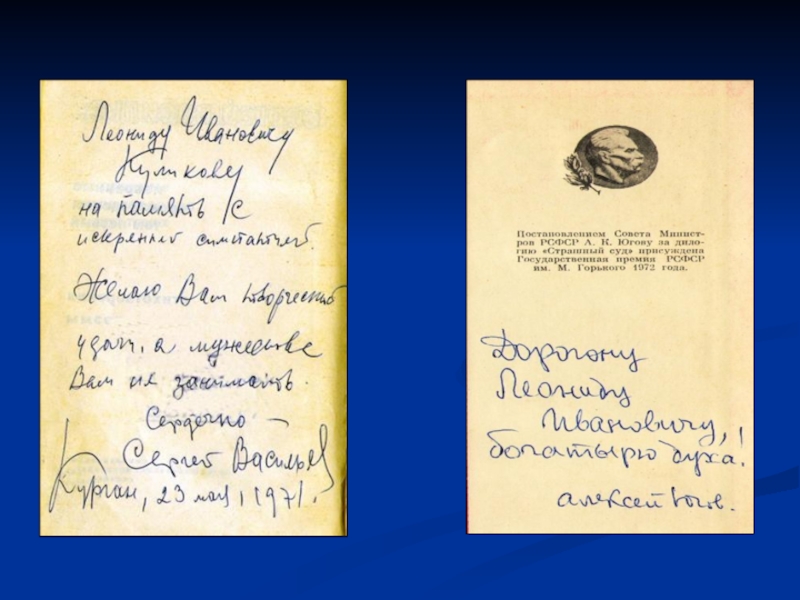 Леониду Ивановичу
Куликову
на память с
искренней симпатией.
Желаю Вам творческих
удач, а мужества
Вам не занимать.
Сердечно —
Сергей Васильев
Курган, 23 мая, 1971.
Постановлением Совета Минист-
ров РСФСР А. К. Югову за дило-
гию «Страшный суд» присуждена
Государственная премия РСФСР
им. М. Горького 1972 года.
Дорогому
Леониду
Ивановичу,
богатырю духа!
Алексей Югов.